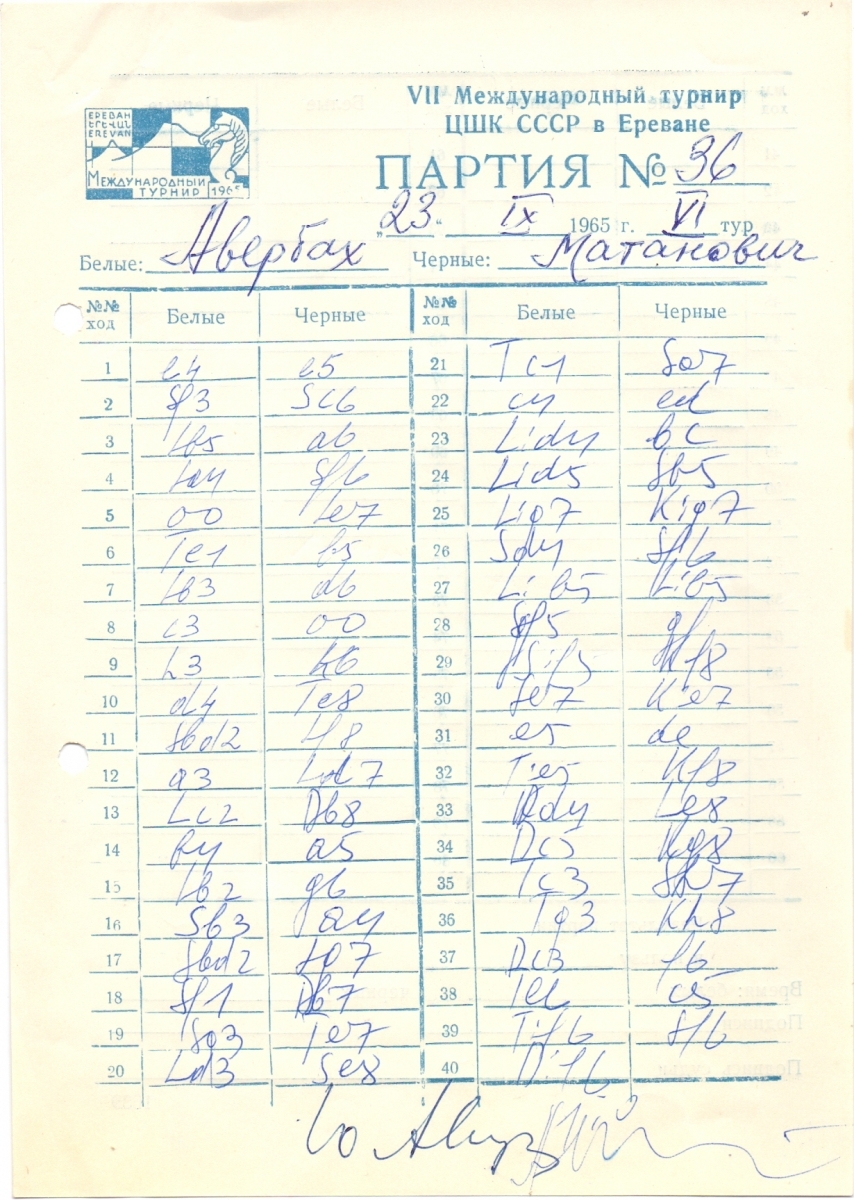 VII Международный турнир
ЦШК СССР в Ереване
ЕРЕВАН
ԵՐԵՎԱՆ
EREVAN
МЕЖДУНАРОДНЫЙ
ТУРНИР 1965
ПАРТИЯ № 36
„23“ IX 1965 г. VI тур
Белые: Авербах Черные: Матанович
№№ ход Белые Черные №№ ход Белые Черные
1 e4 e5 21 Tc1
2 Sf3 Sc6 22 c4 ed
3 Lb5 a6 23 Lid4 bc
4 La4 Sf6 24 Lid5 Sb5
5 00 Le7 25 Lig7 Kig7
6 Te1 b5 26 Sd4 Sf6
7 Lb3 d6 27 Lib5 Lib5
8 c3 00 28 Sf5 gf
9 h3 h6 29 Sif5 Kf8
10 d4 Te8 30 Se7 Kie7
11 Sbd2 Lf8 31 e5 de
12 a3 Ld7 32 Tie5 Kf8
13 Lc2 Db8 33 Dd4 Le8
14 b4 a5 34 Dc5 Kg8
15 Lb2 g6 35 Tc3 Sh7
16 Sb3 a4 36 Tg3 Kh8
17 Sbd2 37 Dc3 f6
18 Sf1 Db7 38 c5
19 Te7 39 Tif6 Sf6
20 Ld3 Se8 40 Dif6